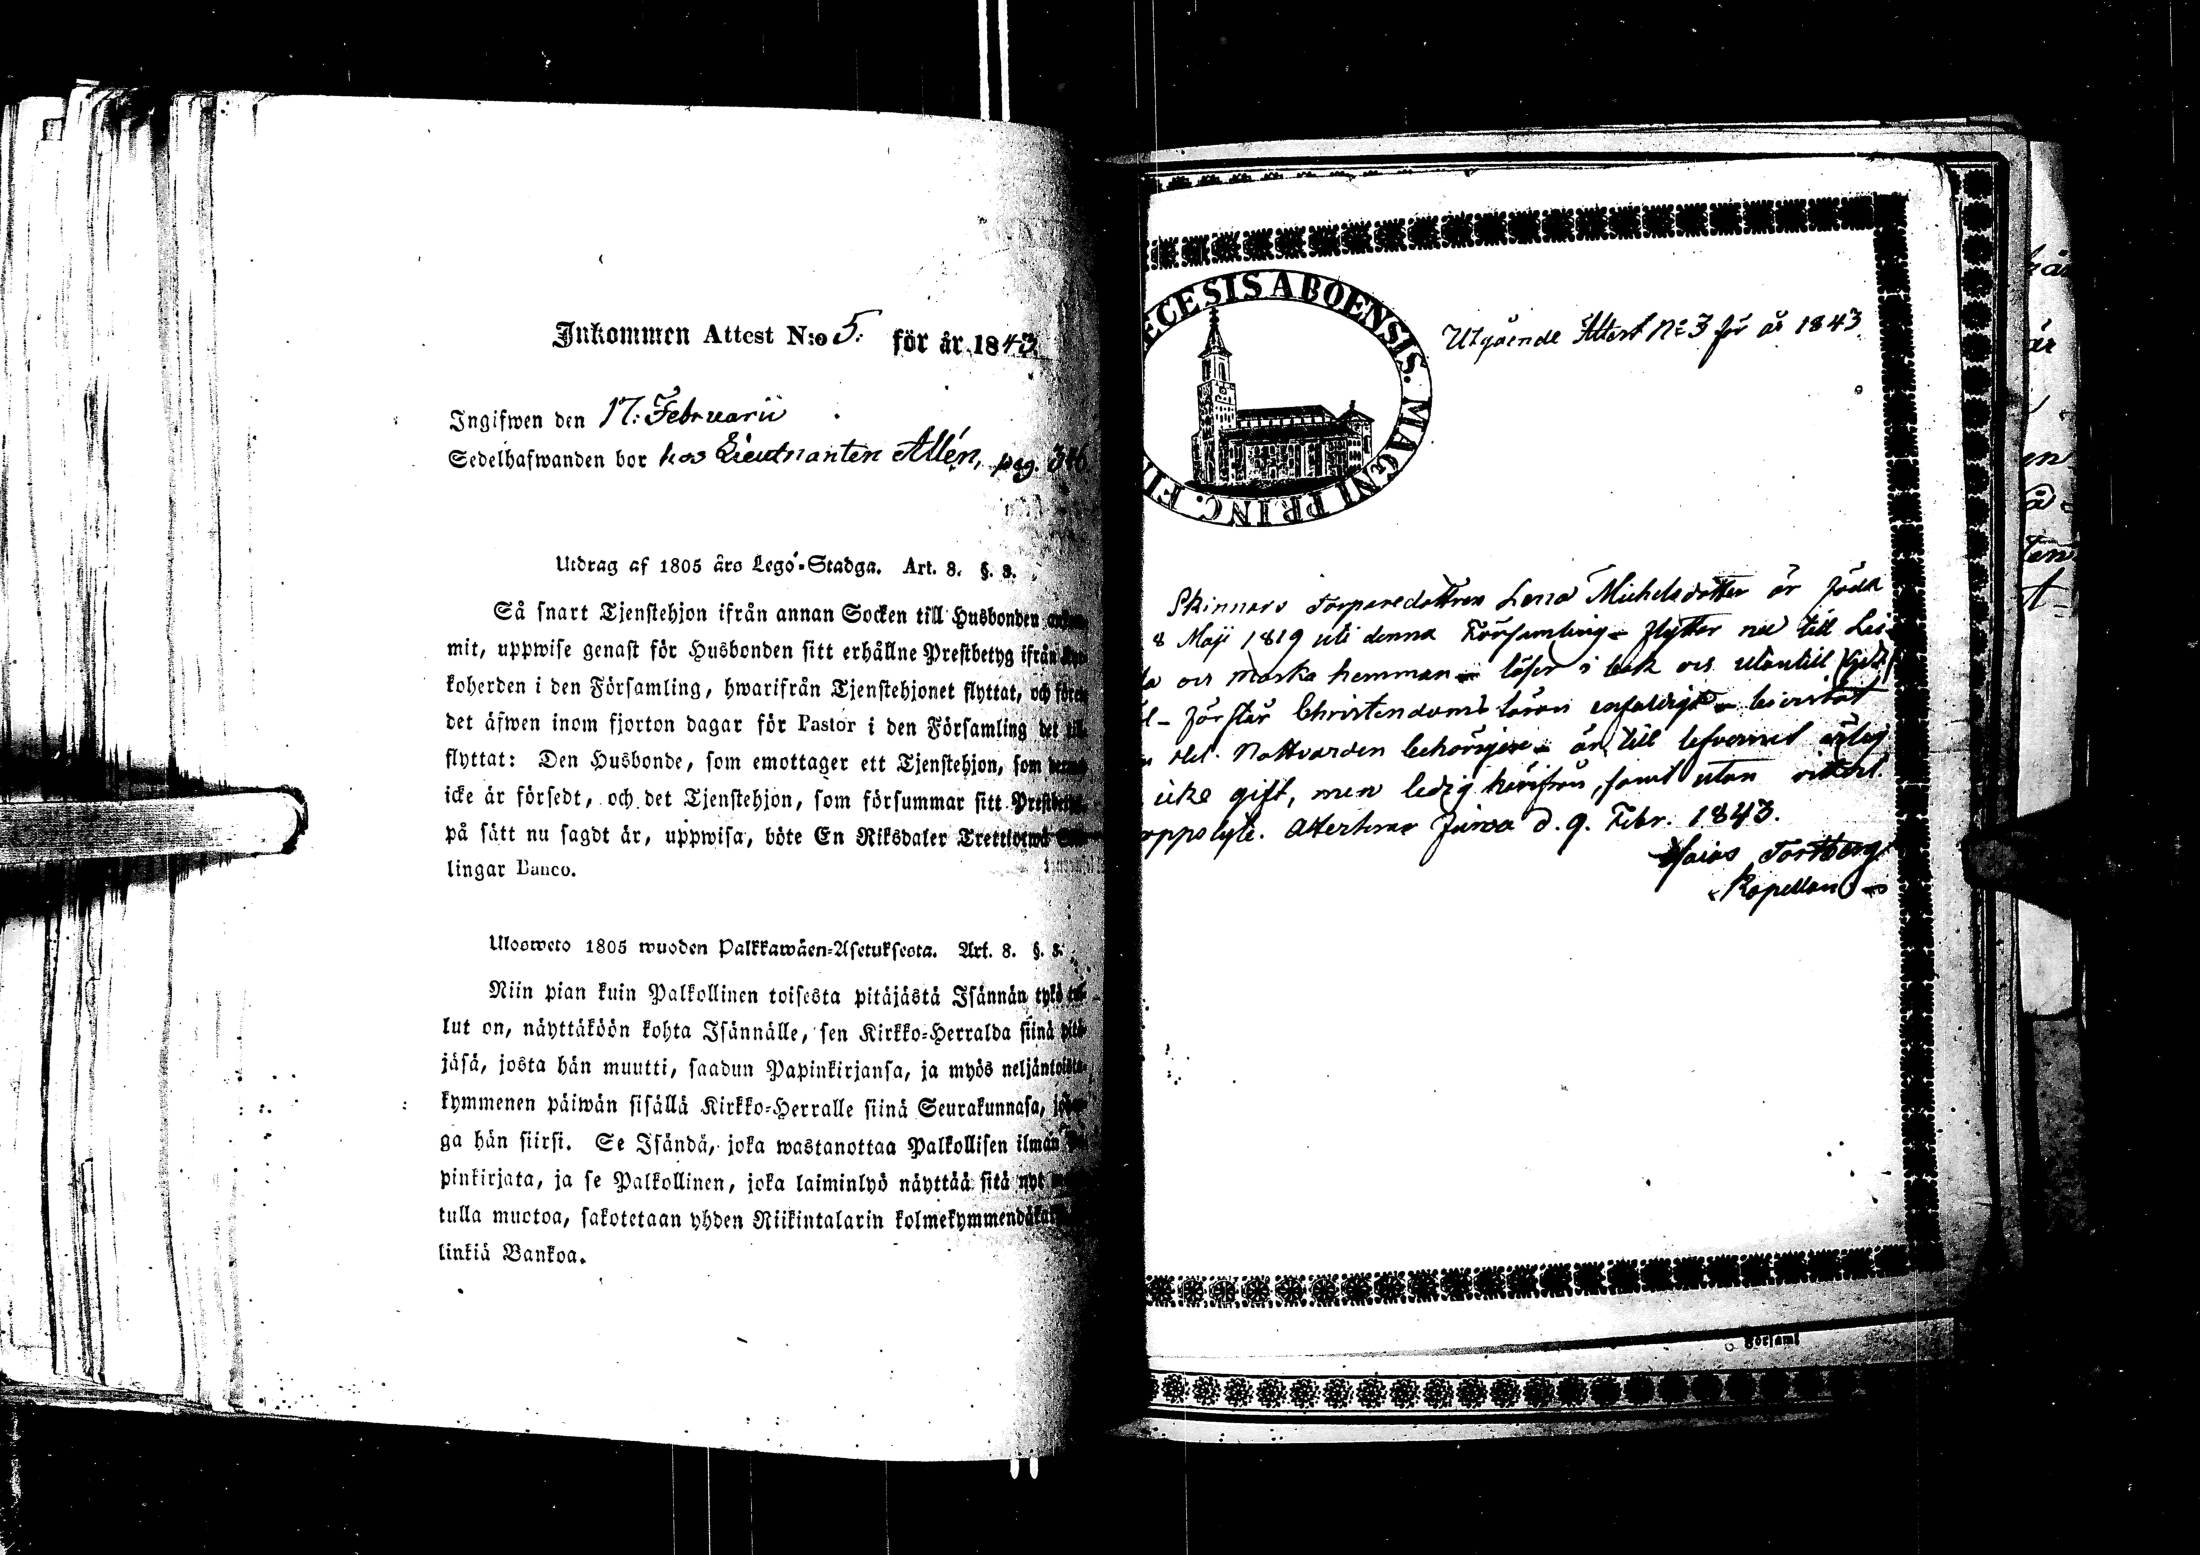 Inkommen Attest N:o 5. för år 1843
Ingifwen den 17: Februarii
Sedelhafwanden bor hos Lieutnanten Allén, pag. 346.
Utdrag af 1805 års Lego-Stadga. Art. 8. §. 3.
Så snart Tjenstehjon ifrån annan Socken till Husbonden
mit, uppwise genast för Husbonden sitt erhållne Prestbetyg ifrån
koherden i den Församling, hwarifrån Tjenstehjonet flyttat, och
det äfwen inom fjorton dagar för Pastor i den Församling det
flyttat: Den Husbonde, som emottager ett Tjenstehjon, som
icke är försedt, och det Tjenstehjon, som försummar sitt
på sätt nu sagdt är, uppwisa, böte En Riksdaler Trettiotwå
lingar Banco.
Ulosweto 1805 wuoden Palkkawäen-Asetuksesta. Art. 8. §. 3.
Niin pian kuin Palkollinen toisesta pitäjästä Isännän tykö
lut on, näyttäköön kohta Isännälle, sen Kirkko-Herralda siinä pitä-
jäsä, josta hän muutti, saadun Papinkirjansa, ja myös neljäntoista-
kymmenen päiwän sisällä Kirkko-Herralle siinä Seurakunnasa,
ga hän siirsi. Se Isändä, joka wastanottaa Palkollisen ilman
pinkirjata, ja se Palkollinen, joka laiminlyö näyttää sitä nyt
tulla muotoa, sakotetaan yhden Riikintalarin
linkiä Bankoa.
ECESIS ABOENSIS. MAGNI PRINC. FI
Utgående Attest No 3 för år 1843
Skinnars Torparedottren Lena Michelsdotter är född
8 Maji 1819 uti denna Församling - flyttar nu till
och Maska hemman - läser i bok och utantill
- förstår Christendoms läran enfaldigt - bivistat
Nattvarden behörigen - är till lefvernet ärlig
icke gift, men ledig härifrån, samt utan
Attesterar Junsa d. 9. Febr. 1843.
Esaias Torstberg
Kapellan
Församl